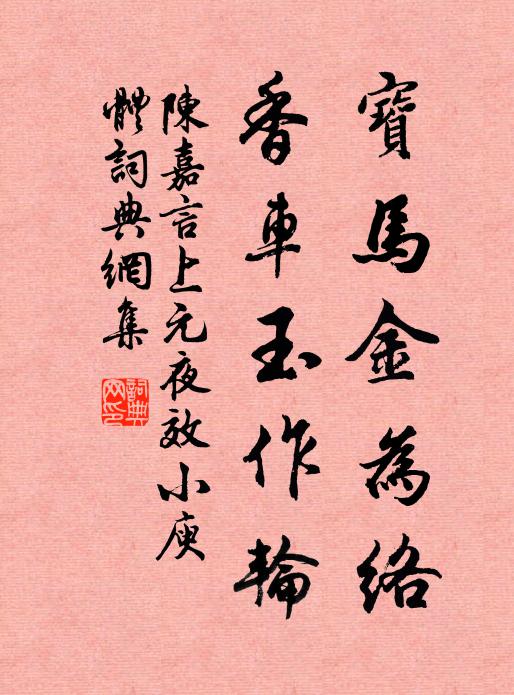 寶馬金為絡
香車玉作輪
陳嘉言上元夜效小庾
體詞典網集
詞典
网印